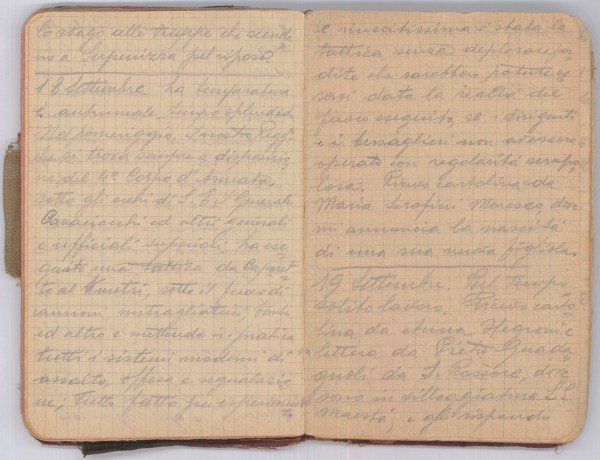 loro cago alle truppe che scendo
no a Serpenizza pel riposo.
18 Settembre. ha temperatura
è autunnale, tempo splendido.
Nel pomeriggio, il nostro Regg.
che si trova sempre a disposizio
ne del 4° Corpo d'Armata,
sotto gli occhi di S. E. il Generale
Cavaciocchi ed altri generali
e ufficiali superiori ha ese
guito una tattica da Caporet
to al Kmutri, sotto il fuoco di
cannoni, mitragliatrici, bombe
ed altro e mettendo in pratica
tutti i sistemi moderni di
assalto, offesa e segnalazio
ne; tutto fatto per esperimen
to
e riuscitissima è stata la
tattica senza deplorare per
dite che sarebbero potute es
servi data la realtà del
fuoco eseguito, se i dirigenti
e i bersaglieri non avessero
operato con regolarità scrupo
losa. Ricevo cartolina da
Maria Serafini Moresco, dove
mi annuncia la nascita
di una sua nuova figliola.
19 Settembre. Bel tempo
solito lavoro. Ricevo carto
lina da e
lettera da Pietro Guada
gnoli da S. Rossore, dove
sono in villeggiatura LL.
Maestà, e gli rispondo